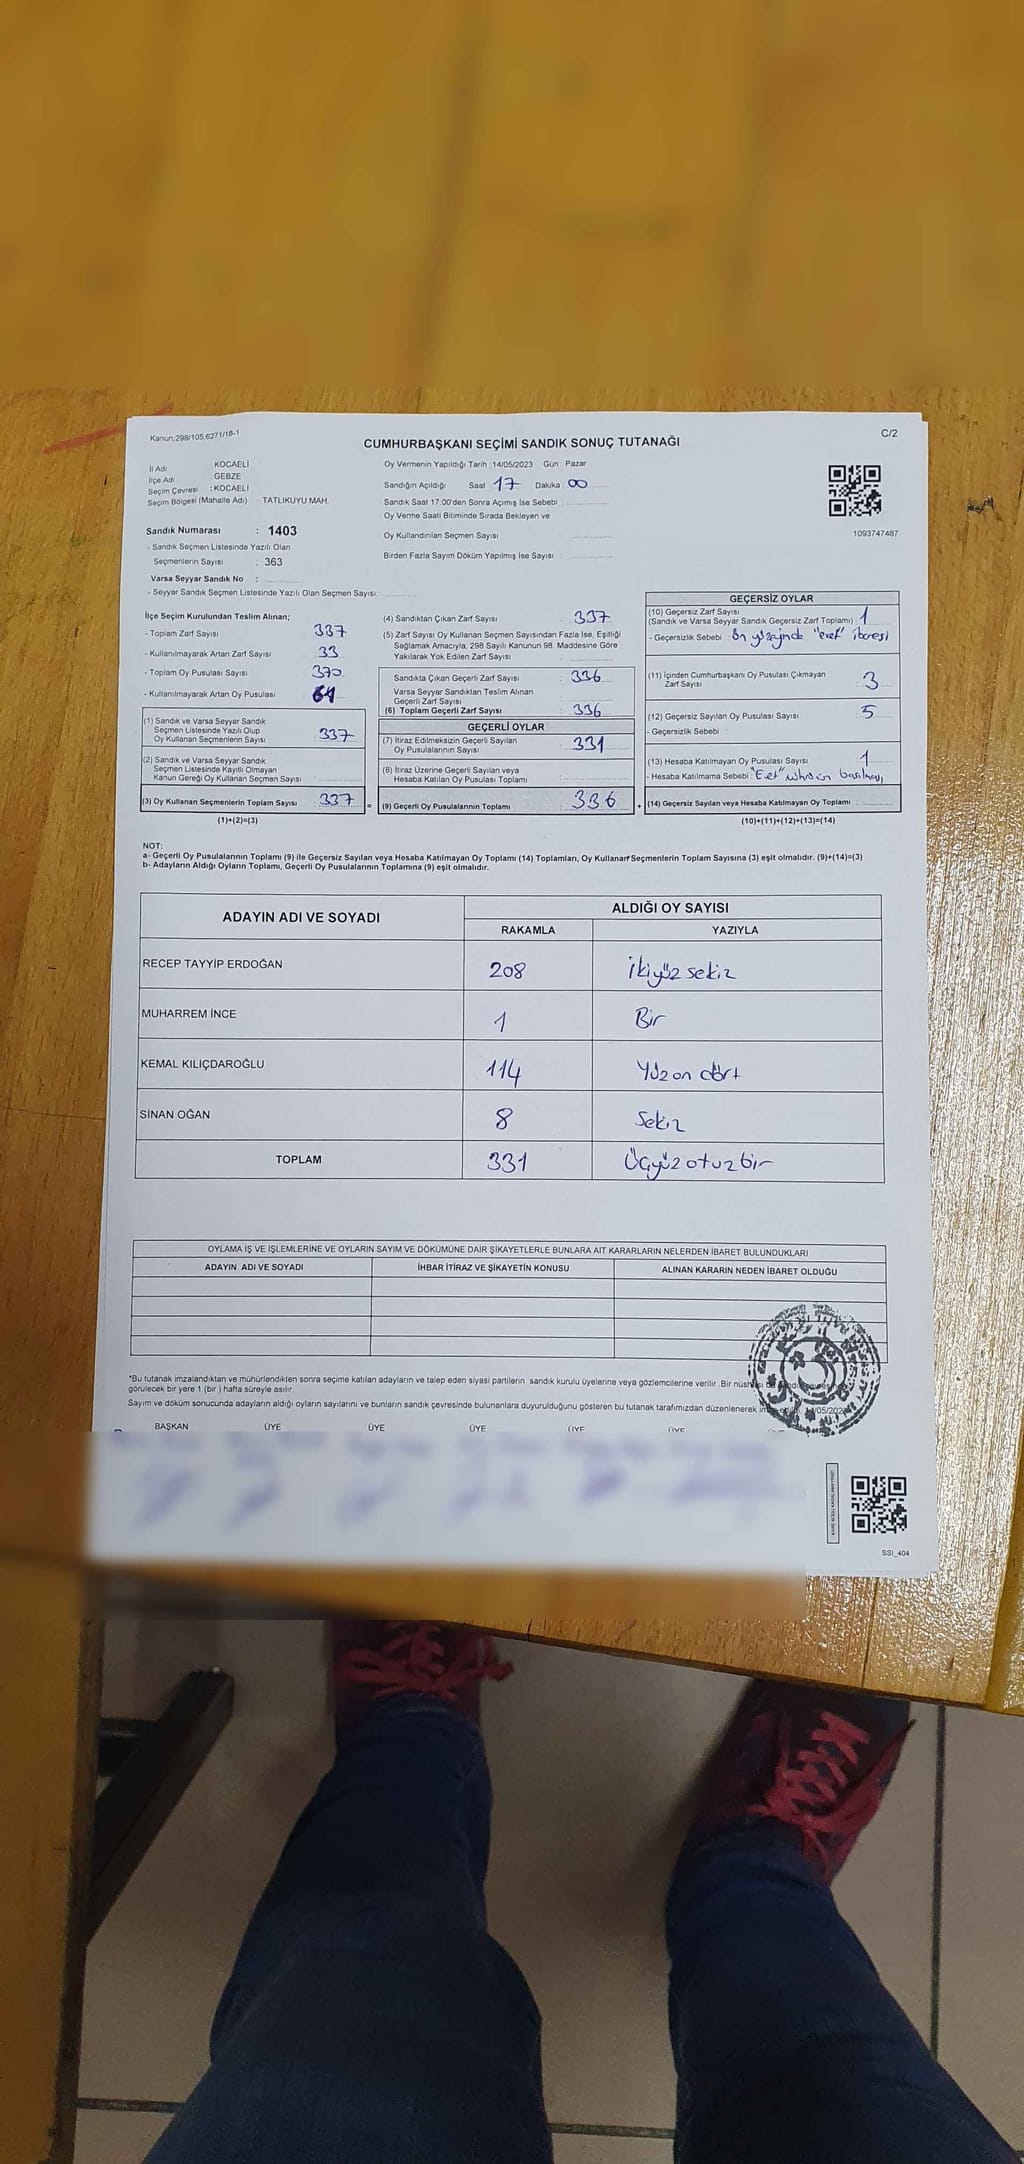 Kanun.298/105,6271/18-1
C/2
CUMHURBAŞKANI SEÇİMİ SANDIK SONUÇ TUTANAĞI
İl Adı KOCAELİ
İlçe Adı GEBZE
Seçim Çevresi : KOCAELİ
Seçim Bölgesi (Mahalle Adı) TATLIKUYU MAH.
Sandık Numarası : 1403
- Sandık Seçmen Listesinde Yazılı Olan
Seçmenlerin Sayısı : 363
Varsa Seyyar Sandık No :
- Seyyar Sandık Seçmen Listesinde Yazılı Olan Seçmen Sayısı:
Oy Vermenin Yapıldığı Tarih :14/05/2023 Gün Pazar
Sandığın Açıldığı Saat 17 Dakika 00
Sandık Saat 17:00'den Sonra Açımış İse Sebebi :
Oy Verme Saati Bitiminde Sırada Bekleyen ve
Oy Kullandırılan Seçmen Sayısı :
Birden Fazla Sayım Döküm Yapılmış İse Sayısı :
1093747487
İlçe Seçim Kurulundan Teslim Alınan;
- Toplam Zarf Sayısı : 337
- Kullanılmayarak Artan Zarf Sayısı : 33
- Toplam Oy Pusulası Sayısı : 370
- Kullanılmayarak Artan Oy Pusulası :
(1) Sandık ve Varsa Seyyar Sandık
Seçmen Listesinde Yazılı Olup
Oy Kullanan Seçmenlerin Sayısı : 337
(2) Sandık ve Varsa Seyyar Sandık
Seçmen Listesinde Kayıtlı Olmayan
Kanun Gereği Oy Kullanan Seçmen Sayısı :
(3) Oy Kullanan Seçmenlerin Toplam Sayısı : 337
(1)+(2)=(3)
(4) Sandıktan Çıkan Zarf Sayısı : 337
(5) Zarf Sayısı Oy Kullanan Seçmen Sayısından Fazla İse, Eşitliği
Sağlamak Amacıyla; 298 Sayılı Kanunun 98. Maddesine Göre
Yakılarak Yok Edilen Zarf Sayısı :
Sandıkta Çıkan Geçerli Zarf Sayısı : 336
Varsa Seyyar Sandıktan Teslim Alınan
Geçerli Zarf Sayısı :
(6) Toplam Geçerli Zarf Sayısı : 336
GEÇERLİ OYLAR
(7) İtiraz Edilmeksizin Geçerli Sayılan
Oy Pusulalarının Sayısı : 331
(8) İtiraz Üzerine Geçerli Sayılan veya
Hesaba Katılan Oy Pusulası Toplamı :
= (9) Geçerli Oy Pusulalarının Toplamı : 336 +
GEÇERSİZ OYLAR
(10) Geçersiz Zarf Sayısı
(Sandık ve Varsa Seyyar Sandık Geçersiz Zarf Toplamı) : 1
- Geçersizlik Sebebi : ön yüzeyinde "evet" ibaresi
(11) İçinden Cumhurbaşkanı Oy Pusulası Çıkmayan
Zarf Sayısı : 3
(12) Geçersiz Sayılan Oy Pusulası Sayısı : 5
- Geçersizlik Sebebi :
(13) Hesaba Katılmayan Oy Pusulası Sayısı : 1
- Hesaba Katılmama Sebebi :
(14) Geçersiz Sayılan veya Hesaba Katılmayan Oy Toplamı :
(10)+(11)+(12)+(13)=(14)
NOT:
a- Geçerli Oy Pusulalarının Toplamı (9) ile Geçersiz Sayılan veya Hesaba Katılmayan Oy Toplamı (14) Toplamları, Oy Kullanan Seçmenlerin Toplam Sayısına (3) eşit olmalıdır. (9)+(14)=(3)
b- Adayların Aldığı Oyların Toplamı, Geçerli Oy Pusulalarının Toplamına (9) eşit olmalıdır.
ADAYIN ADI VE SOYADI
ALDIĞI OY SAYISI
RAKAMLA YAZIYLA
RECEP TAYYİP ERDOĞAN 208 ikiyüz sekiz
MUHARREM İNCE 1 Bir
KEMAL KILIÇDAROĞLU 114 Yüz on dört
SİNAN OĞAN 8 Sekiz
TOPLAM 331 Üçyüz otuz bir
OYLAMA İŞ VE İŞLEMLERİNE VE OYLARIN SAYIM VE DÖKÜMÜNE DAİR ŞİKAYETLERLE BUNLARA AİT KARARLARIN NELERDEN İBARET BULUNDUKLARI
ADAYIN ADI VE SOYADI İHBAR İTİRAZ VE ŞİKAYETİN KONUSU ALINAN KARARIN NEDEN İBARET OLDUĞU
*Bu tutanak imzalandıktan ve mühürlendikten sonra seçime katılan adayların ve talep eden siyasi partilerin sandık kurulu üyelerine veya gözlemcilerine verilir. Bir
görülecek bir yere 1 (bir) hafta süreyle asılır.
Sayım ve döküm sonucunda adayların aldığı oyların sayılarını ve bunların sandık çevresinde bulunanlara duyurulduğunu gösteren bu tutanak tarafımızdan düzenlenerek
BAŞKAN ÜYE ÜYE ÜYE ÜYE ÜYE
SSI_404